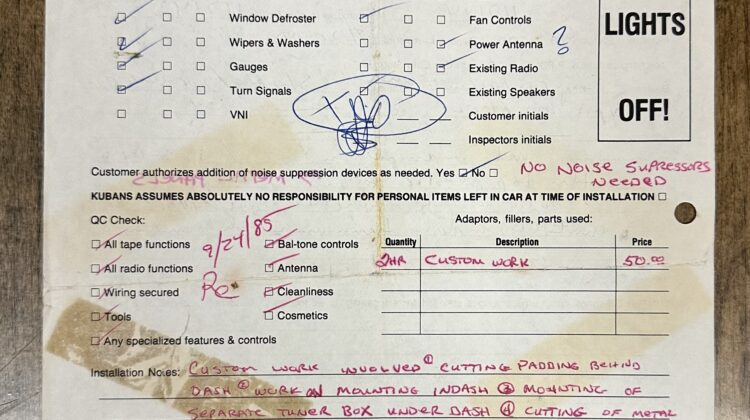 Window Defroster Fan Controls LIGHTS
Wipers & Washers Power Antenna ?
Gauges Existing Radio
Turn Signals Existing Speakers OFF!
VNI Customer initials
Inspectors initials
Customer authorizes addition of noise suppression devices as needed. Yes No NO NOISE SUPRESSORS
NEEDED
KUBANS ASSUMES ABSOLUTELY NO RESPONSIBILITY FOR PERSONAL ITEMS LEFT IN CAR AT TIME OF INSTALLATION
QC Check: Adaptors, fillers, parts used:
9/24/85
All tape functions Bal-tone controls Quantity Description Price
All radio functions Antenna 2HR CUSTOM WORK 50.00
Wiring secured Cleanliness
Tools Cosmetics
Any specialized features & controls
Installation Notes: CUSTOM WORK INVOLVED ① CUTTING PADDING BEHIND
DASH ② WORK ON MOUNTING INDASH ③ MOUNTING OF
SEPARATE TUNER BOX UNDER DASH ④ CUTTING OF METAL